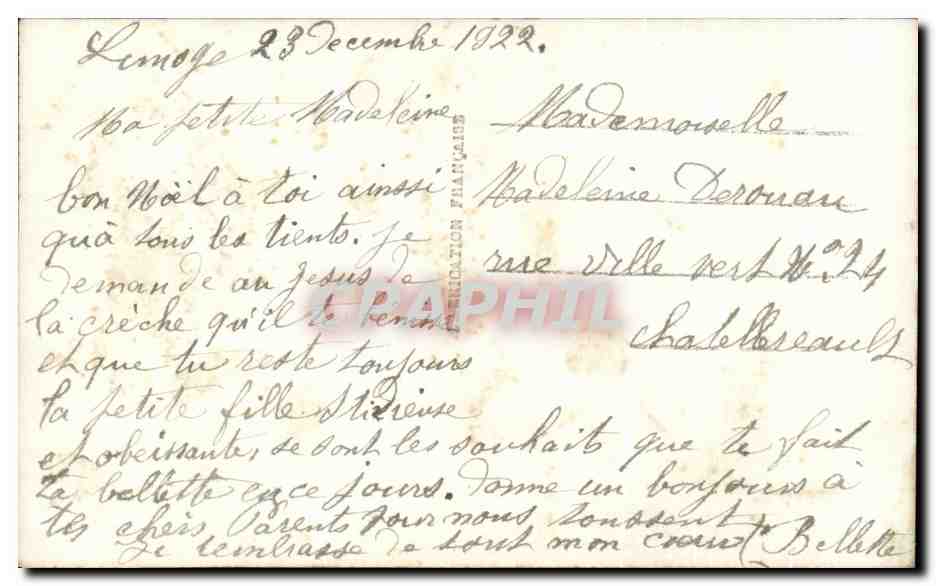 Limoge 23 decembre 1922.
Ma petite Madeleine
bon Noël à toi ainsi
qu'à tous les tients. je
demande au jesus de
la crèche qu'il te benisse
et que tu reste toujours
la petite fille studieuse
et obeissante, se sont les souhaits que te fait
ta bellette en ce jours. donne un bonjours à
tes chers Parents pour nous
Je t'embrasse de tout mon cœur Bellette
FABRICATION FRANÇAISE
Mademoiselle
Madeleine Derouau
rue ville vert N° 24
Chatellereault
CPAPHIL